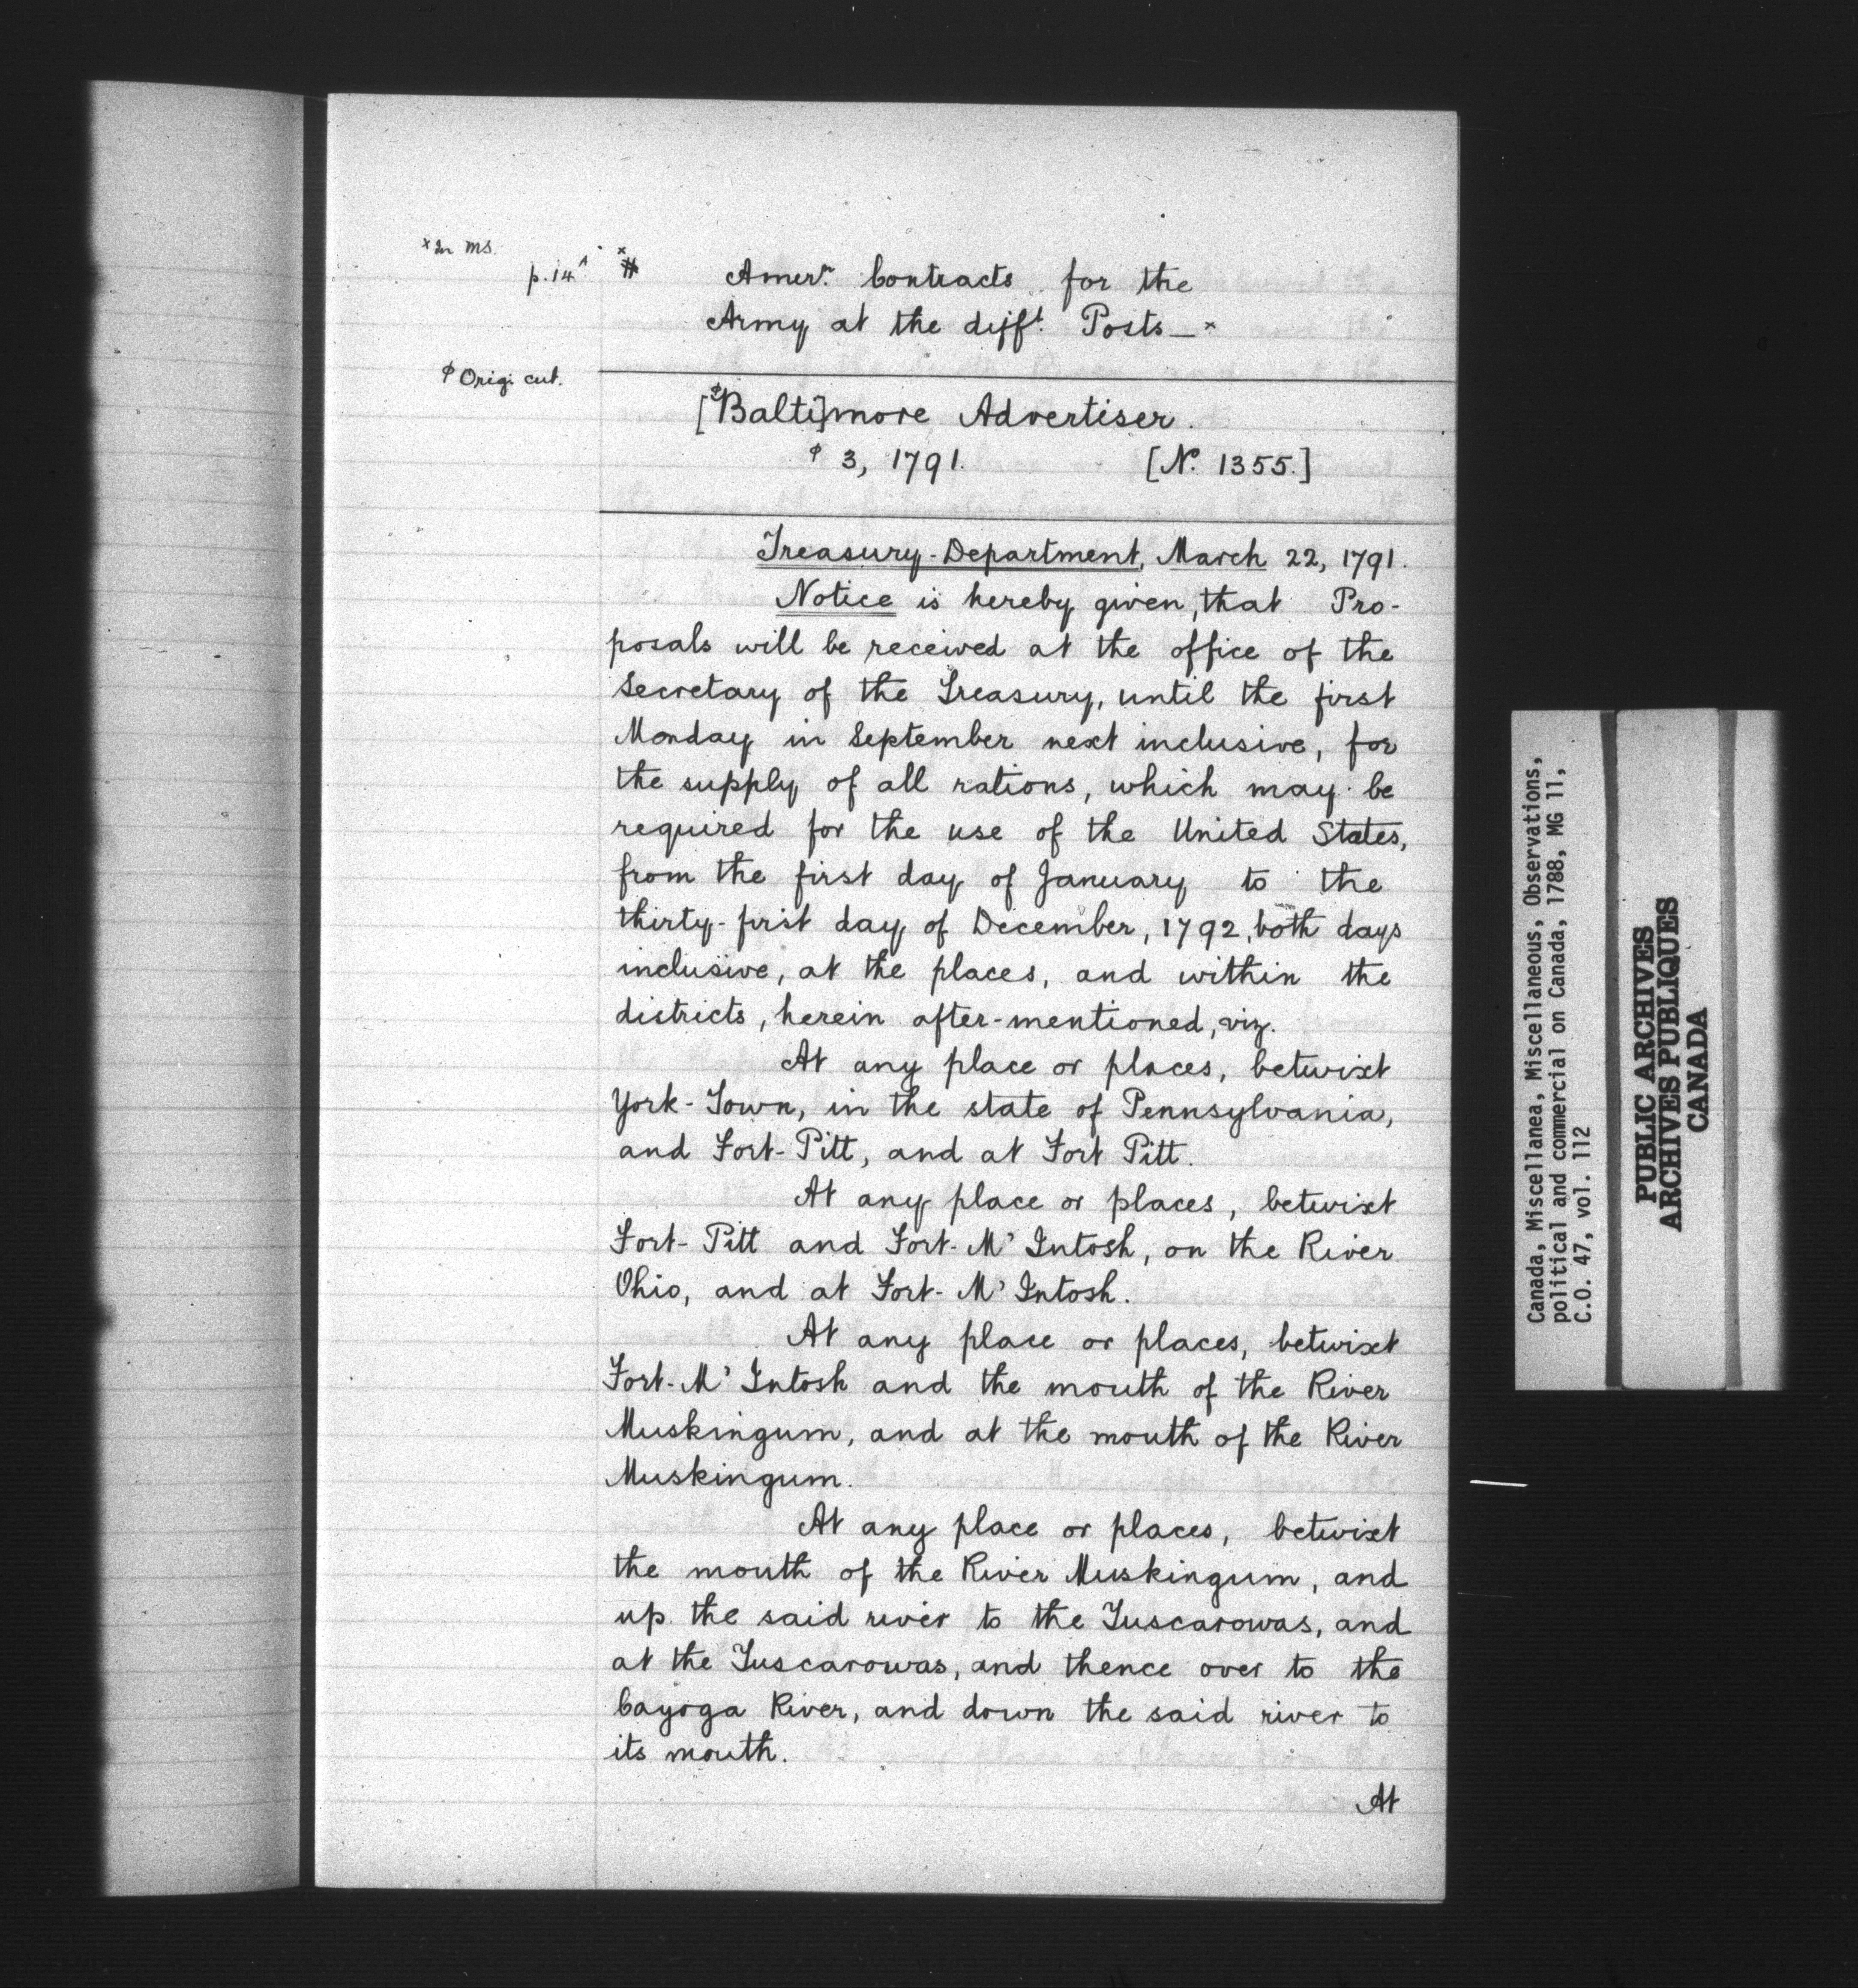 x In MS.
p. 14 x #
Amern. Contracts for the
Army at the difft. Posts — x
φ Orig. cut.
[φBalti]more Advertiser.
φ 3, 1791. [N. 1355.]
Treasury-Department, March 22, 1791.
Notice is hereby given, that Pro-
posals will be received at the office of the
Secretary of the Treasury, until the first
Monday in September next inclusive, for
the supply of all rations, which may be
required for the use of the United States,
from the first day of January to the
thirty-first day of December, 1792, both days
inclusive, at the places, and within the
districts, herein after-mentioned, viz.
At any place or places, betwixt
York-Town, in the state of Pennsylvania,
and Fort-Pitt, and at Fort Pitt.
At any place or places, betwixt
Fort-Pitt and Fort-M'Intosh, on the River
Ohio, and at Fort-M'Intosh.
At any place or places, betwixt
Fort-M'Intosh and the mouth of the River
Muskingum, and at the mouth of the River
Muskingum.
At any place or places, betwixt
the mouth of the River Muskingum, and
up the said river to the Tuscarowas, and
at the Tuscarowas, and thence over to the
Cayoga River, and down the said river to
its mouth.
At
Canada, Miscellanea, Miscellaneous, Observations,
political and commercial on Canada, 1788, MG 11,
C.O. 47, vol. 112
PUBLIC ARCHIVES
ARCHIVES PUBLIQUES
CANADA